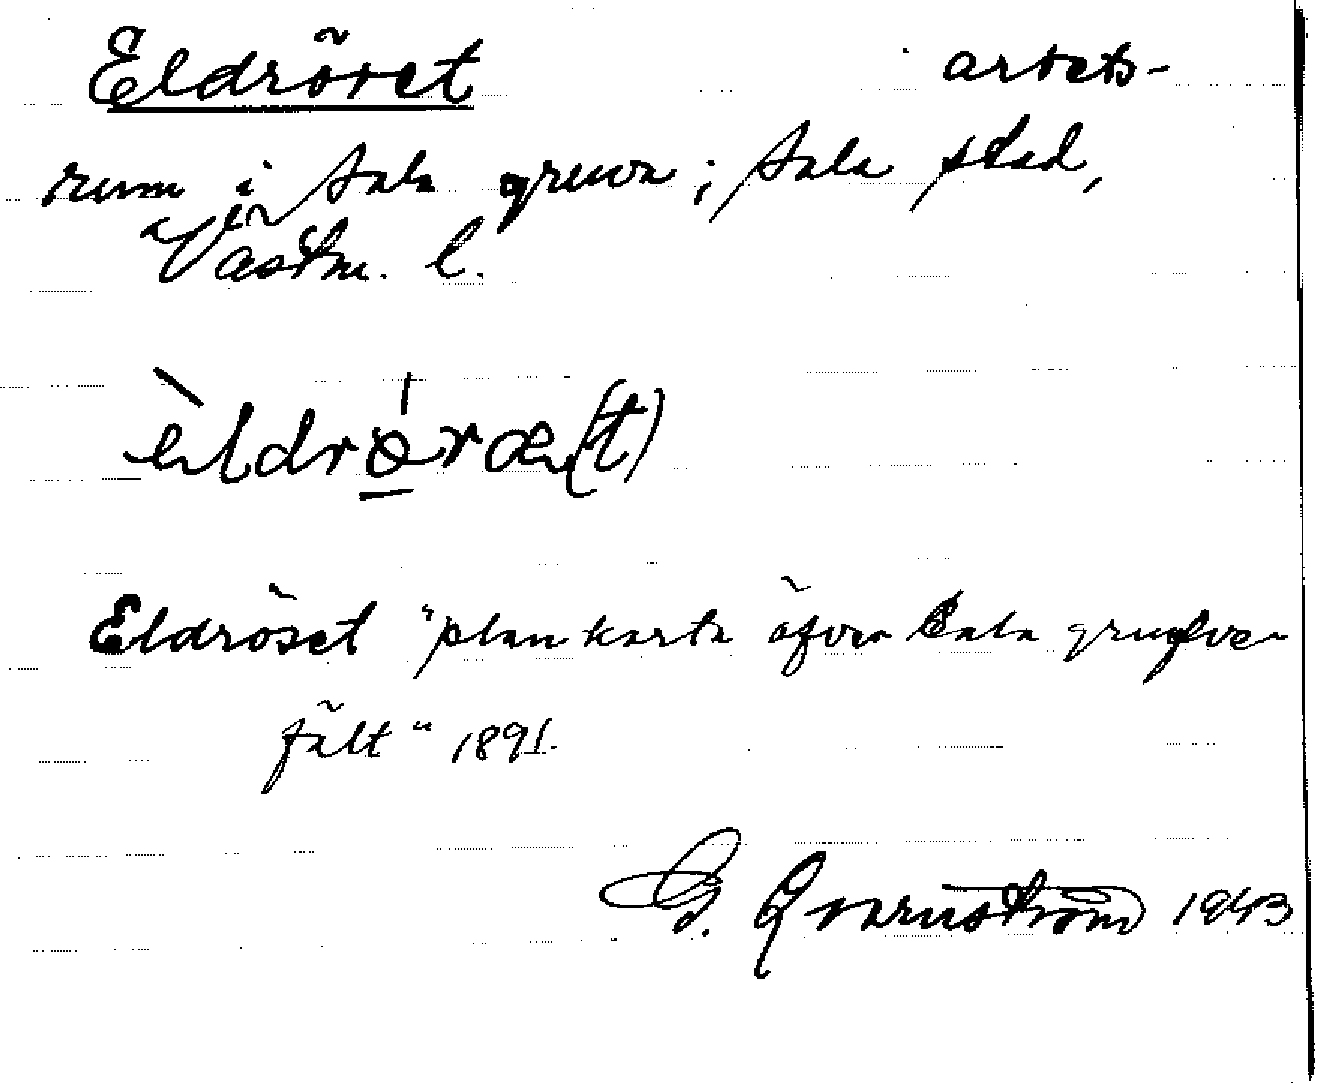 Eldröret arbets-
rum i Sala gruva; Sala stad,
Västm. l.
èldrø̱ræ(t)
Eldröset "plankarta öfver Sala grufve
fält" 1891.
G. Qvarnström 1943